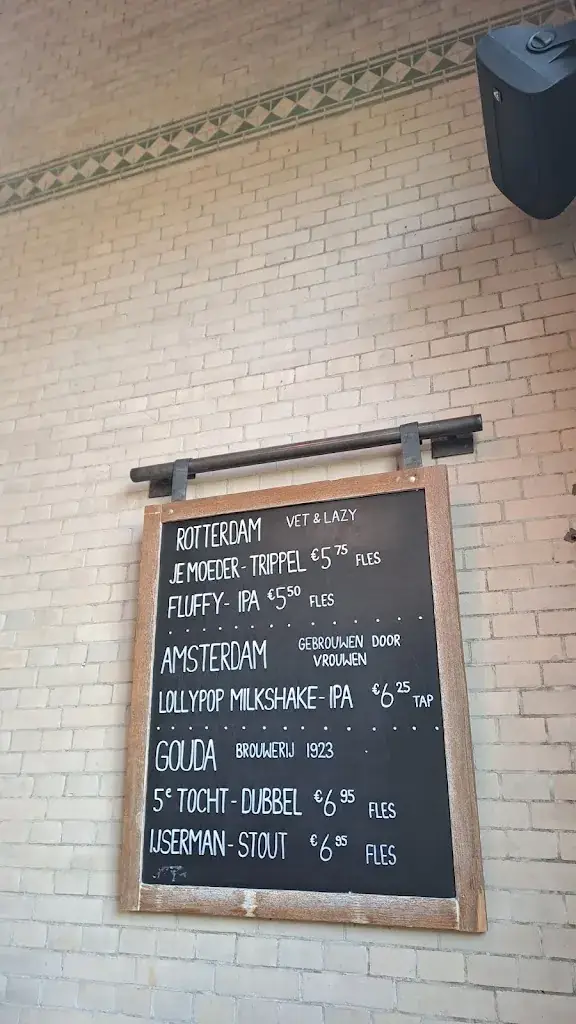 ROTTERDAM VET & LAZY
JE MOEDER - TRIPPEL €5 75 FLES
FLUFFY - IPA €5 50 FLES
AMSTERDAM GEBROUWEN DOOR VROUWEN
LOLLYPOP MILKSHAKE - IPA €6 25 TAP
GOUDA BROUWERIJ 1923
5e TOCHT - DUBBEL €6 95 FLES
IJSERMAN - STOUT €6 95 FLES